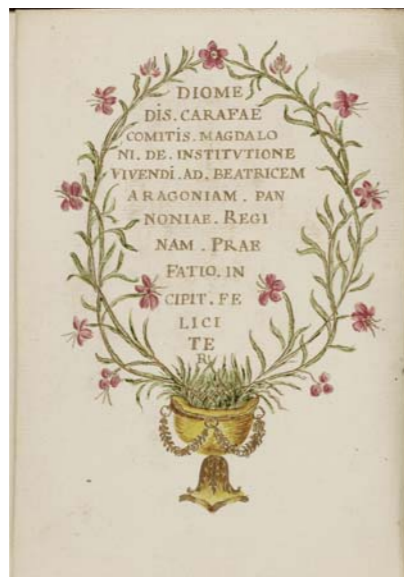 DIOME
DIS. CARAFAE
COMITIS. MAGDALO
NI. DE. INSTITVTIONE
VIVENDI. AD. BEATRICEM
ARAGONIAM. PAN
NONIAE. REGI
NAM. PRAE
FATIO. IN
CIPIT. FE
LICI
TE
R.